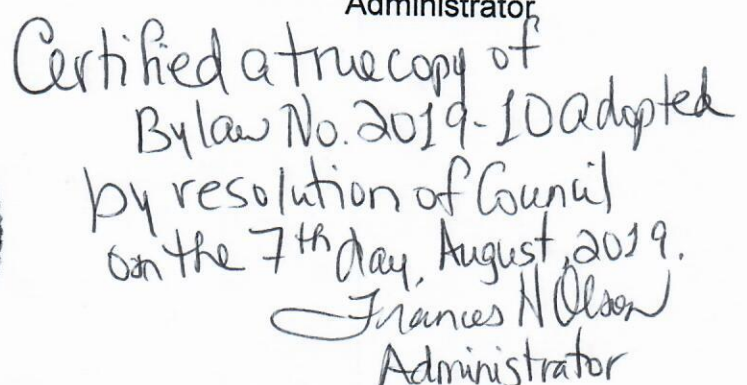 Administrator
Certified a true copy of
Bylaw No. 2019-10 adopted
by resolution of Council
on the 7th day, August, 2019.
Frances N Olson
Administrator